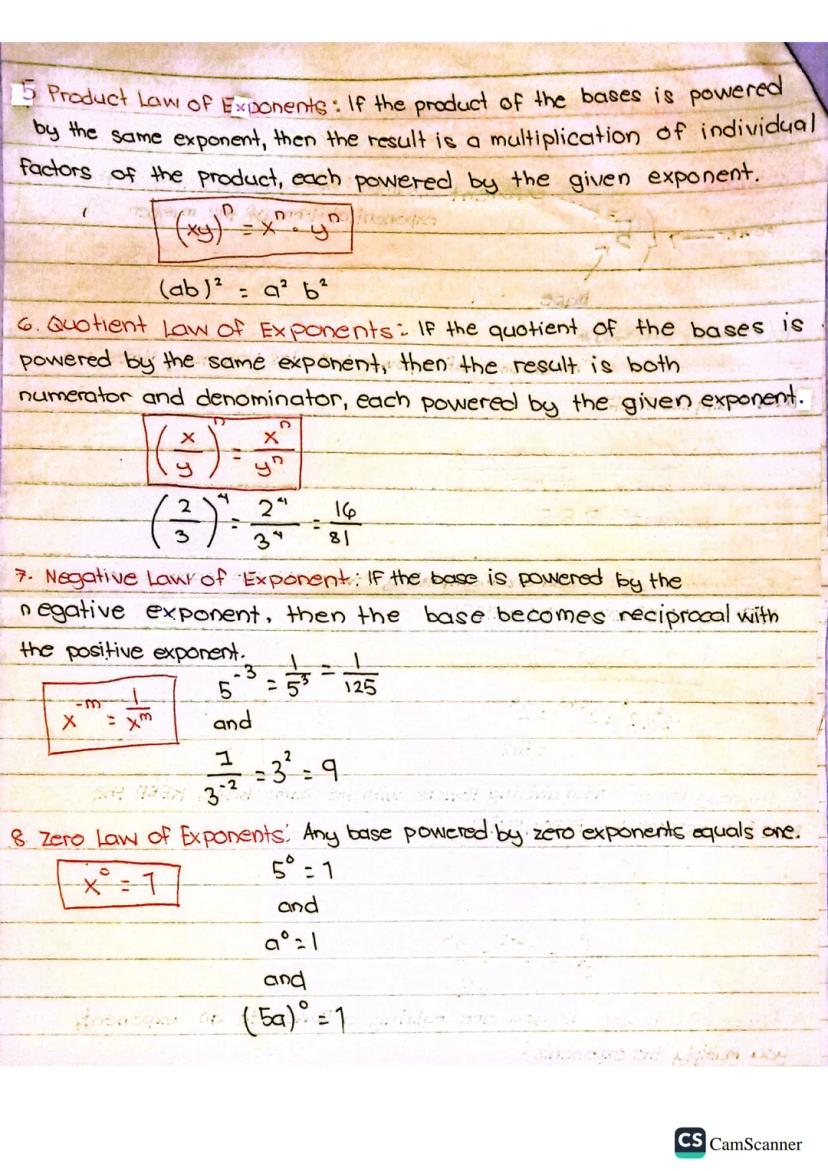 5 Product Law of Exponents: If the product of the bases is powered
by the same exponent, then the result is a multiplication of individual
factors of the product, each powered by the given exponent.
(xy)ⁿ = xⁿ · yⁿ
(ab)² = a² b²
6. Quotient Law of Exponents: If the quotient of the bases is
powered by the same exponent, then the result is both
numerator and denominator, each powered by the given exponent.
(x/y)ⁿ = xⁿ/yⁿ
(2/3)⁴ = 2⁴/3⁴ = 16/81
7. Negative Law of Exponent: If the base is powered by the
negative exponent, then the base becomes reciprocal with
the positive exponent.
5⁻³ = 1/5³ = 1/125
x⁻ᵐ = 1/xᵐ
and
1/3⁻² = 3² = 9
8. Zero Law of Exponents: Any base powered by zero exponents equals one.
x⁰ = 1
5⁰ = 1
and
a⁰ = 1
and
(5a)⁰ = 1
CS CamScanner